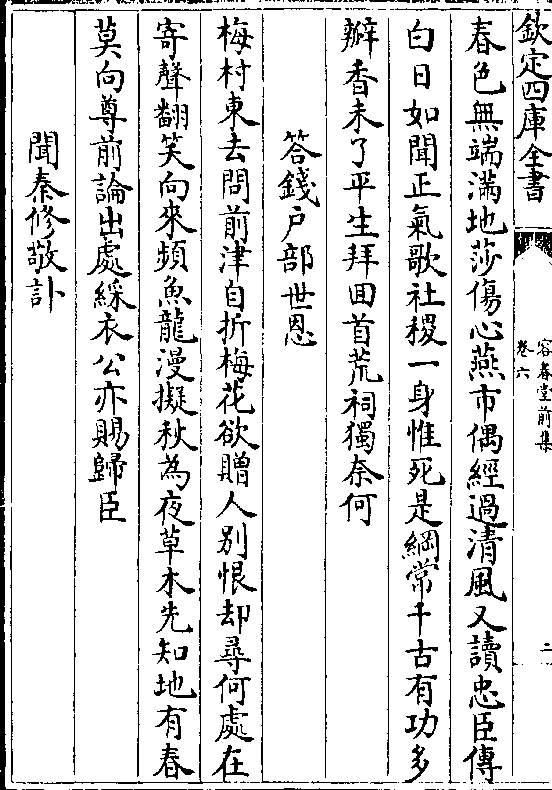 欽定四庫全書
容春堂前集
卷六
二
春色無端滿地莎傷心燕市偶經過清風又讀忠臣傳
白日如聞正氣歌社稷一身惟死是綱常千古有功多
瓣香未了平生拜回首荒祠獨奈何
答錢户部世恩
梅村東去問前津自折梅花欲贈人别恨却尋何處在
寄聲翻笑向來頻魚龍漫擬秋為夜草木先知地有春
莫向尊前論出處綵衣公亦賜歸臣
聞秦修敬訃